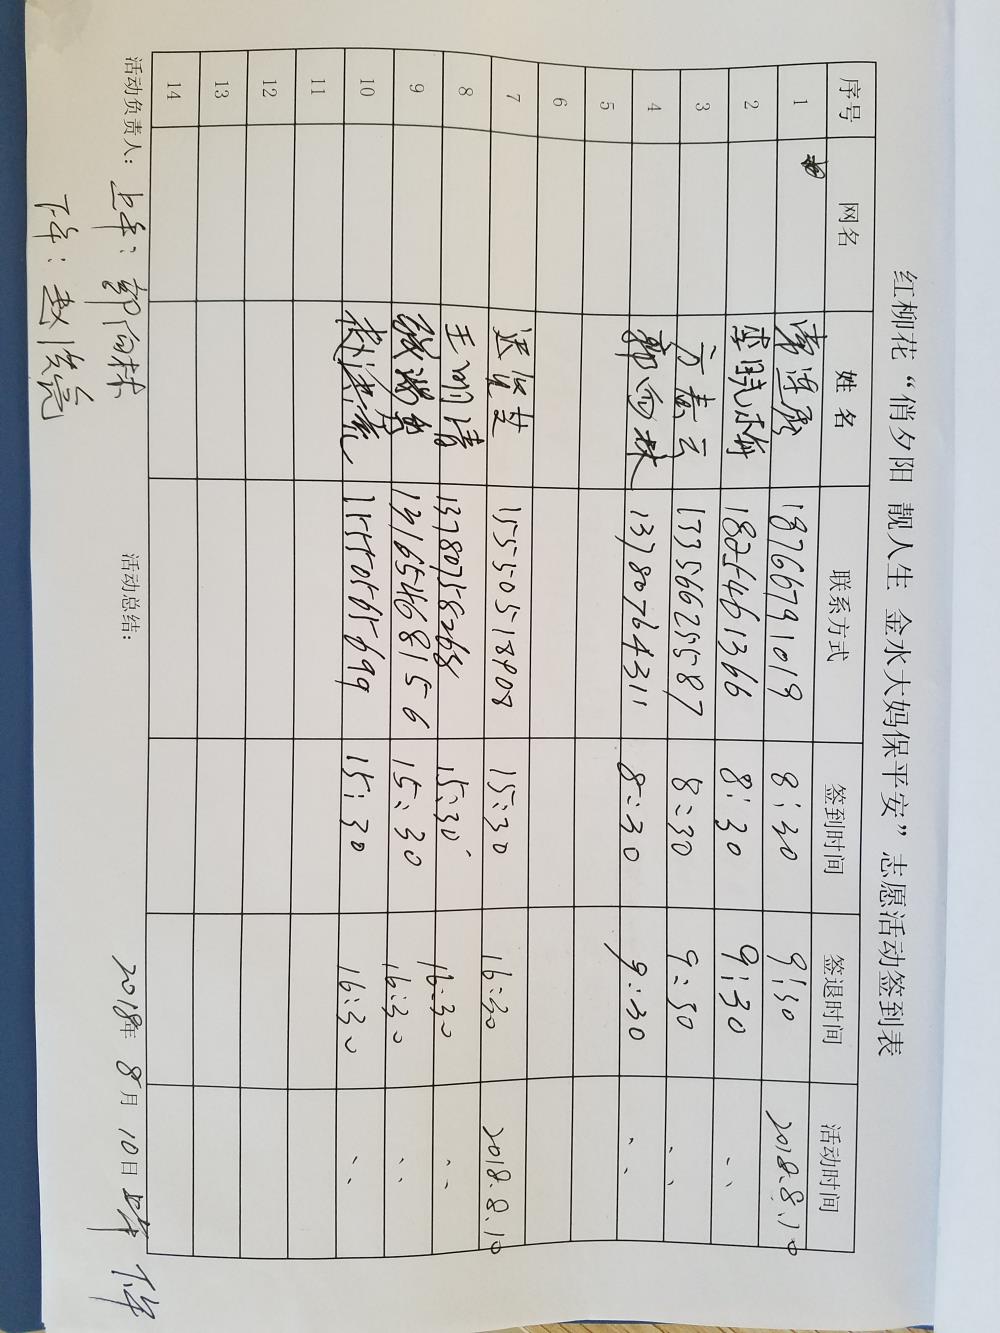 红柳花“俏夕阳 靓人生 金水大妈保平安”志愿活动签到表
序号 网名 姓名 联系方式 签到时间 签退时间 活动时间
1 18766791019 8:30 9:30 2018.8.10
2 李晓梅 18254461366 8:30 9:30 〃
3 方惠云 13356625587 8:30 9:30 〃
4 郭向林 13780764311 8:30 9:30 〃
5
6
7 15550518908 15:30 16:30 2018.8.10
8 王明清 13780758268 15:30 16:30 〃
9 15:30 16:30 〃
10 15:30 16:30 〃
11
12
13
14
活动负责人: 上午: 郭向林 活动总结: 2018年 8月 10日 上午 下午
下午: 赵俊亮